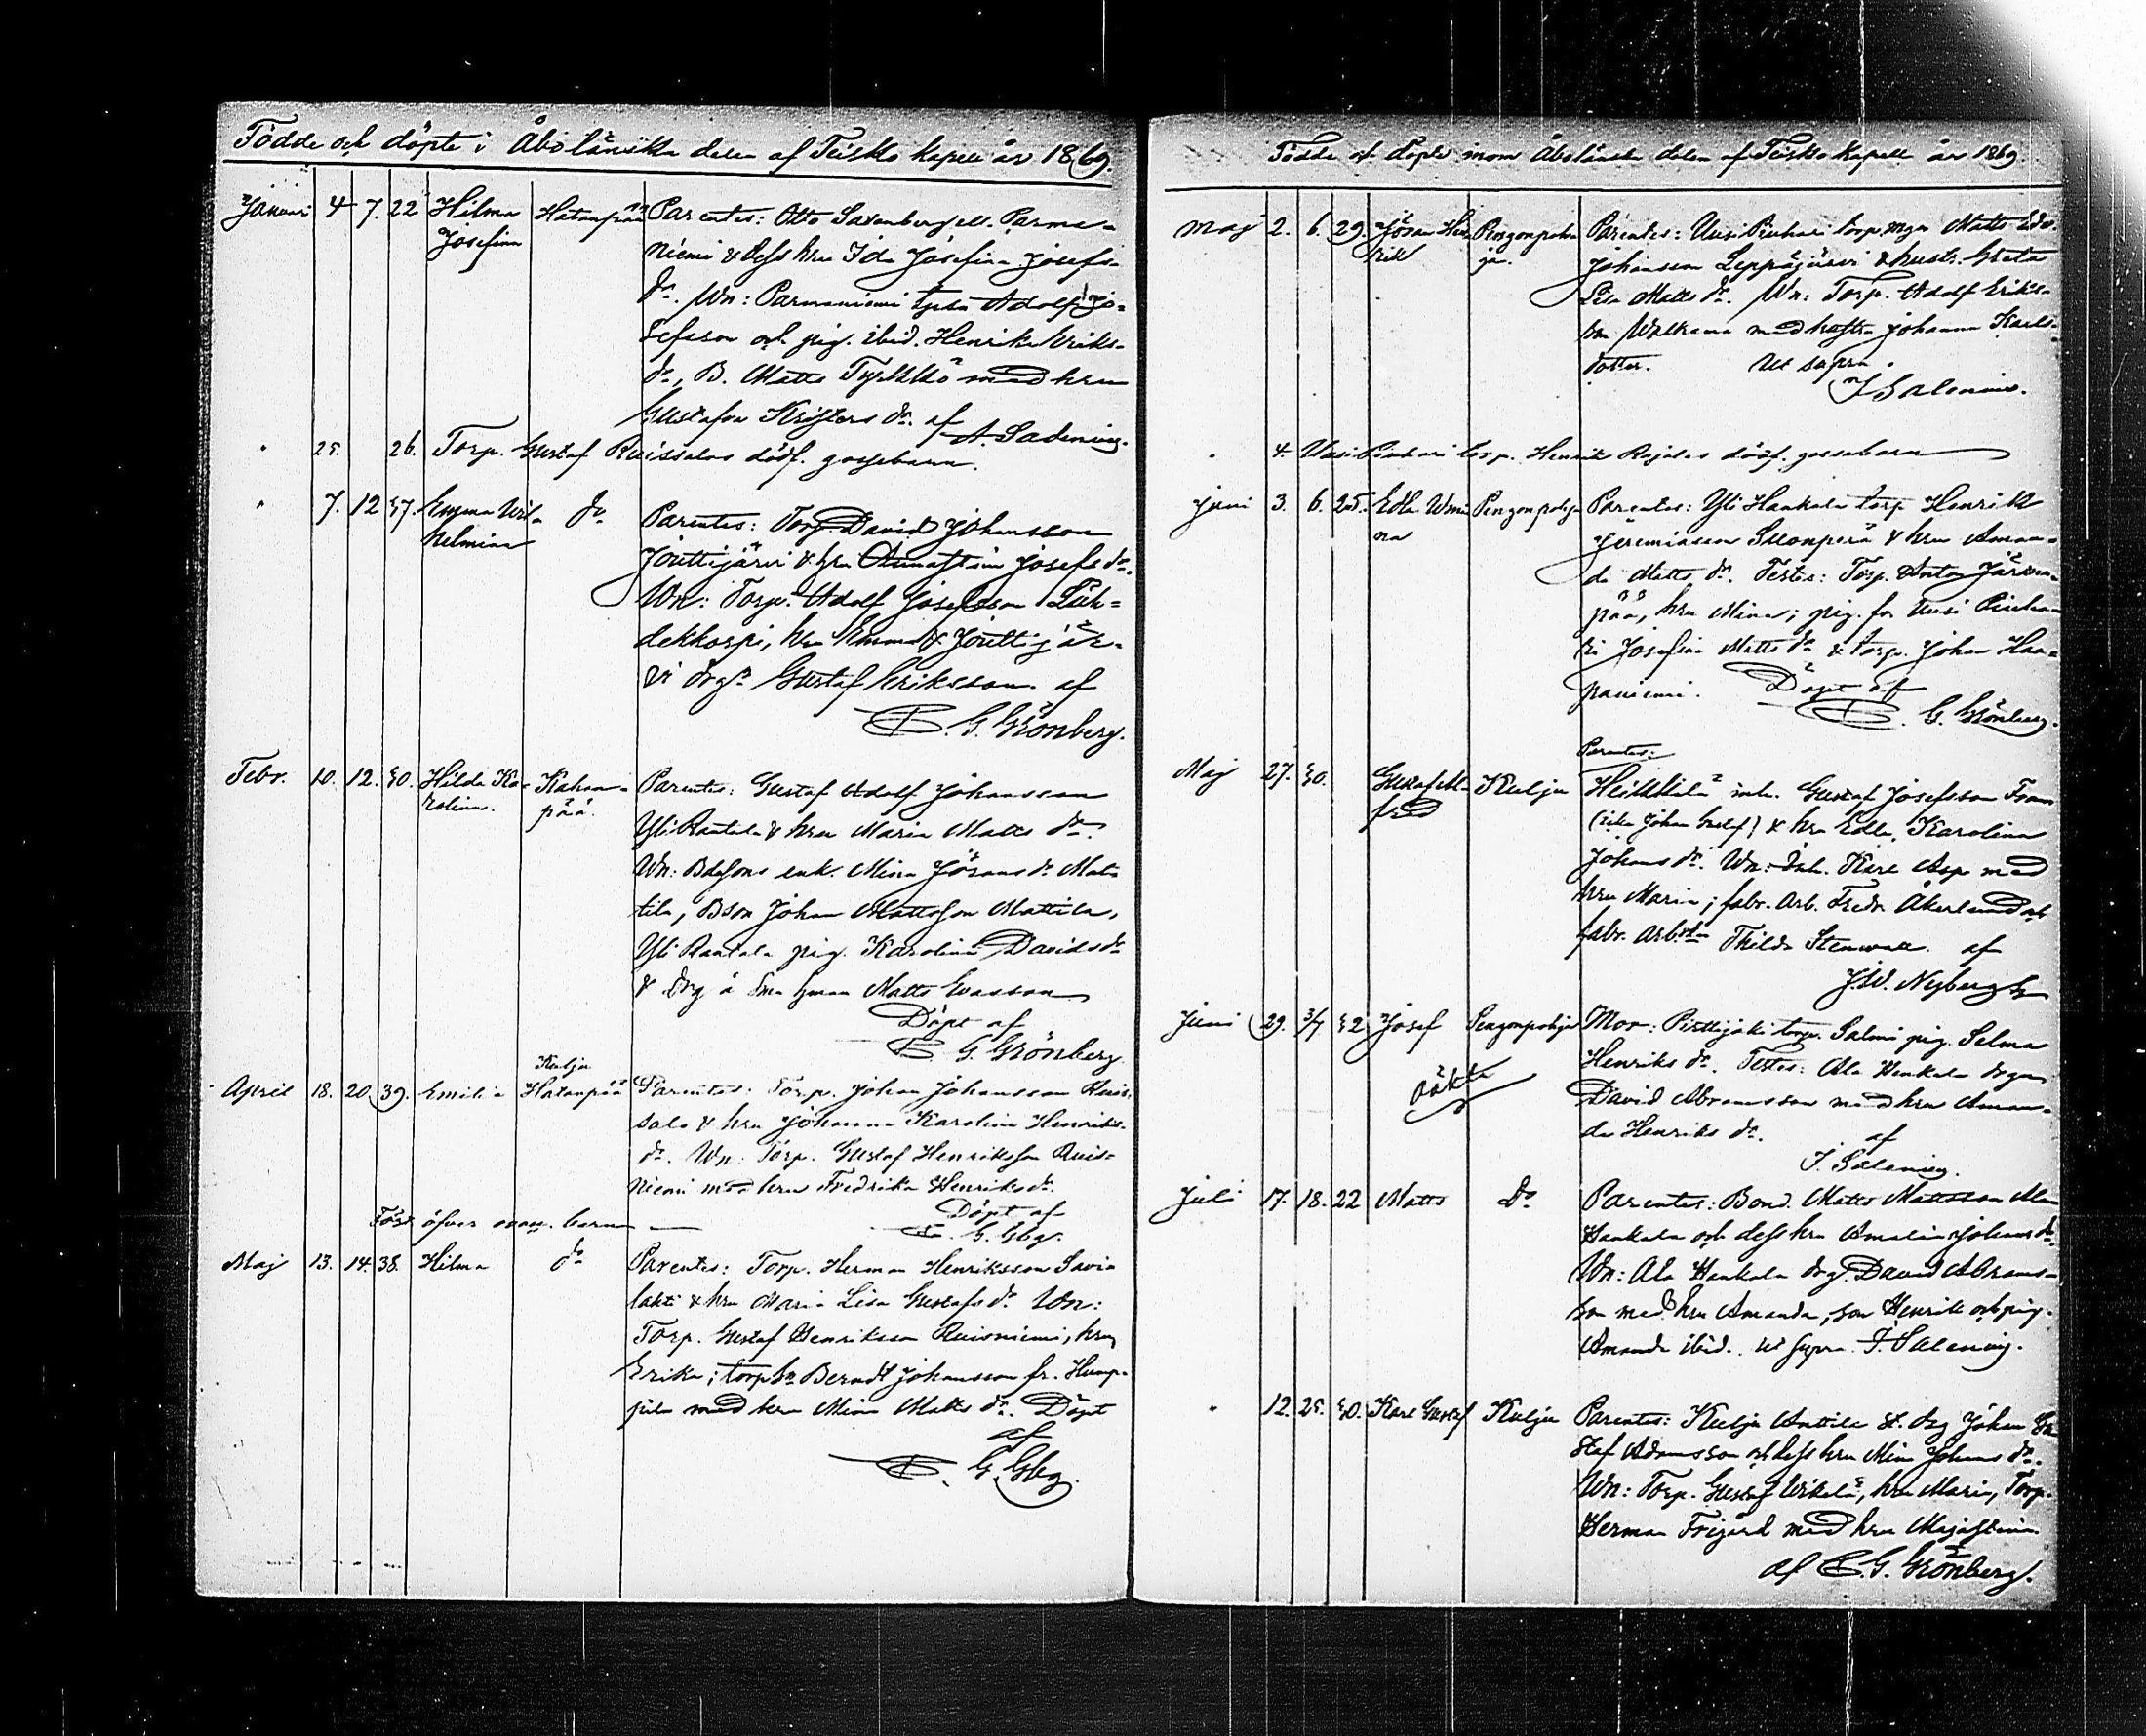 Födde och döpte i Åbolänska delen af Teisko Kapell år 1869.
Januari 4 7. 22 Hilma Hatanpää Parentes: Otto Saxenberg ell. Parma-
Josefina niemi & dess hru Ida Josefina Josefs
dr. Wn: Parmaniemi Adolf Jo-
sefsson och pig. ibid. Henrika Eriks-
dr, B. Matts Tyrkkö med hru
Gustafva Kristers dr. af
A. Salenius.
" 25. 26. Torp. Gustaf Ruissalos dödf. gossebarn.
" 7. 12 37. Emma Wil- do Parentes: Torp. David Johansson
helmina Jouttijärvi & hru Annastina Josefs dr.
Wn: Torp. Adolf Josefsson Läh-
dekkorpi, hru Emma & Jouttijär-
vi drgn Gustaf Eriksson. af
C. G. Grönberg.
Febr. 10. 12. 30. Hilda Ka- Kahan- Parentes: Gustaf Adolf Johansson
rolina. pää. Yli Rantala & hru Maria Matts dr.
Wn: Bdesons enk. Mina Jörans dr Mat-
tila, Bson Johan Mattsson Mattila,
Yli Rantala pig. Karolina Davids dr
& drg å Matts Evasson
Döpt af
C. G. Grönberg
Kulju
April 18. 20. 39. Emilia Hatanpää Parentes: Torp. Johan Johansson Ruis-
salo & hru Johanna Karolina Henriks-
dr. Wn: Torp. Gustaf Henriksson Ruis-
niemi med hru Fredrika Henriks dr.
Döpt af
Förd. öfver barn C. G. Gbg.
Maj 13. 14. 38. Hilma do Parentes: Torp. Herman Henriksson Savi-
lahti & hru Maria Lisa Gustafs dr. Wn:
Torp. Gustaf Henriksson Ruisniemi, hru
Erika; torpsn Berndt Johansson fr. Hump-
pila med hru Mina Matts dr. Döpt
af
C. G. Gbg.
Födde och döpte inom Åbolänska delen af Teisko Kapell år 1869.
Maj 2. 6. 29. Jöran Hen- Pengonpohja Parentes: Uusi Pinhari torp. mgn Matts Eds-
rik Johansson Leppäjärvi & hustr. Greta
Lisa Matts dr. Wn: Torp. Adolf Eriks-
son Walkama med hustru Johanna Karls-
dotter. Ut supra.
J Salenius.
" 4. Uusi Pinhari torp. Henrik Rajalas dödf. gossebarn
Juni 3. 6. 25. Edla Wmi- Pengonpohja Parentes: Yli Hankala torp Henrik
na Jeremiasson Suonperä & hru Aman-
da Matts dr. Testes: Torp. Anton Järven-
pää, hru Mina; pig. fr. Uusi Pinha-
ri Josefina Matts dr & torp. Johan Haa-
paniemi. Döpt af
C. G. Grönberg.
Parentes:
Maj 27. 30. Gustaf Al- Kulju Heikkilä inh. Gustaf Josefsson From
fred (icke Johan Gustaf) & hru Edla Karolina
Johans dr. Wn: Inh. Karl Asp med
hru Maria; fabr. Arb. Fredr. Åkerlund och
fabr. arb. Thilda Stenwall. af
J.W. Nyberg
Juni 29. 3/7 32 Josef Pengonpohja Mor: Pirttijoki torp. Salmi pig. Selma
oäkta Henriks dr. Testes: Ala Hankala drgn
David Abramsson med hru Aman-
da Henriks dr. af
J. Salenius.
Juli 17. 18. 22 Matts do Parentes: Bond. Matts Mattsson Ala
Hankala och dess hru Amalia Johans dr.
Wn: Ala Hankala drg. David Abrams-
son med hru Amanda, son Henrik och pig.
Amanda ibid. ut supra J. Salenius.
" 12. 25. 30. Karl Gustaf Kulju Parentes: Kulju Anttila st. drg Johan Gu-
staf Adamsson och dess hru Mina Johans dr.
Wn: Torp. Gustaf Wikelä, hru Maria, Torp.
Herman Frigård med hru Majastina
af C. G. Grönberg.